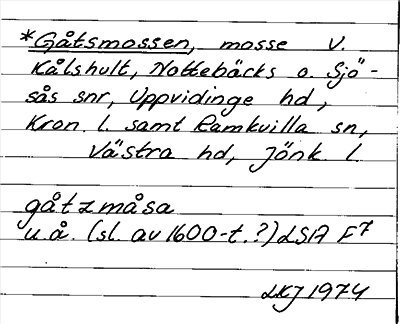 *Gåtsmossen, mosse V.
Kålshult, Nottebäcks o. Sjö-
sås snr, Uppvidinge hd,
Kron. l. samt Ramkvilla sn,
Västra hd, Jönk. l.
gåtzmåsa
u.å. (sl. av 1600-t.?) LSA F7
LKJ 1974